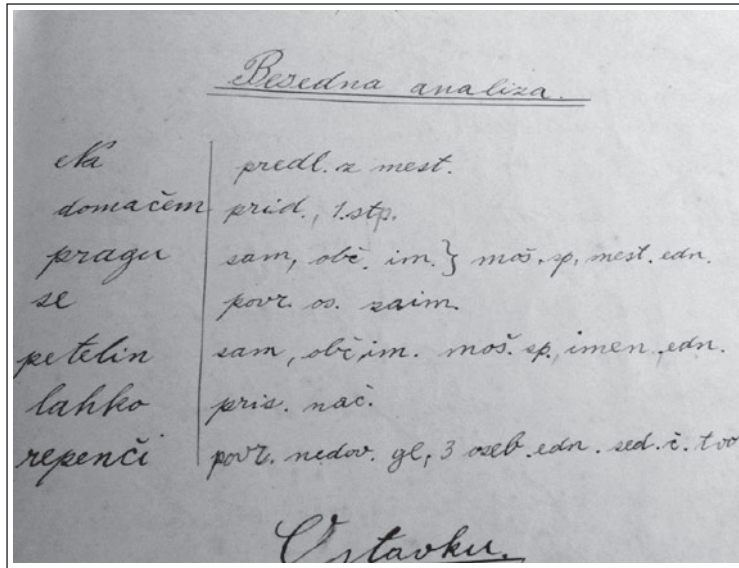 Besedna analiza.
Na predl. z mest.
domačem prid., 1. stp.
pragu sam, obč. im. } moš. sp, mest. edn.
se povr. os. zaim.
petelin sam, obč, im. moš. sp, imen. edn.
lahko pris. nač.
repenči povr. nedov. gl, 3 oseb. edn. sed. č. tvo
O stavku.